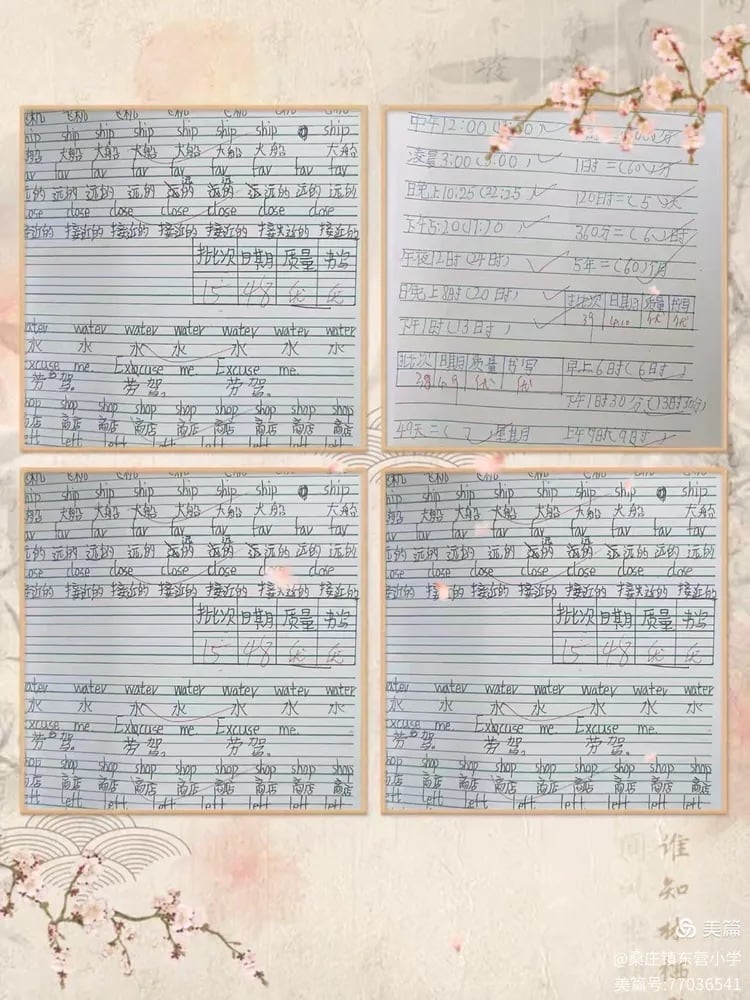 ship ship ship ship ship ship
大船 大船 大船 大船 大船 大船
far far far far far far far
远的 远的 远的 远的 远的 远的
close close close close close
接近的 接近的 接近的 接近的 接近的 接近的
批次 日期 质量 书写
15 4.8 优 优
water water water water water water
水 水 水 水 水 水
me. Exbcuse me. Excuse me.
劳驾。 劳驾。 劳驾。
shop shop shop shop shop shops
商店 商店 商店 商店 商店 商店
left left left left left left
中午12:00
凌晨3:00(3:00) 1时=(60)分
晚上10:25(22:25) 120日时=(5)天
下午5:20(17:20) 360分=(6)时
午夜12时(24时) 5年=(60)个月
晚上8时(20时) 批次 日期 质量 书写
下午1时(13时) 39 4.10 优 优
批次 日期 质量 书写 早上6时(6时)
38 4.9 优 优
下午1时30分(13时30分)
49天=(7)星期 上午9时(9时)
ship ship ship ship ship ship
大船 大船 大船 大船 大船 大船
far far far far far far far
远的 远的 远的 远的 远的 远的
close close close close close
接近的 接近的 接近的 接近的 接近的 接近的
批次 日期 质量 书写
15 4.8 优 优
water water water water water water
水 水 水 水 水 水
me. Exbcuse me. Excuse me.
劳驾。 劳驾。 劳驾。
shop shop shop shop shop shops
商店 商店 商店 商店 商店 商店
left left left left left left
ship ship ship ship ship ship
大船 大船 大船 大船 大船 大船
far far far far far far far
远的 远的 远的 远的 远的 远的
close close close close close
接近的 接近的 接近的 接近的 接近的 接近的
批次 日期 质量 书写
15 4.8 优 优
water water water water water water
水 水 水 水 水 水
me. Exbcuse me. Excuse me.
劳驾。 劳驾。 劳驾。
shop shop shop shop shop shops
商店 商店 商店 商店 商店 商店
left left left left left left
谁知林栖
美篇
@桑庄镇东营小学
美篇号:77036541